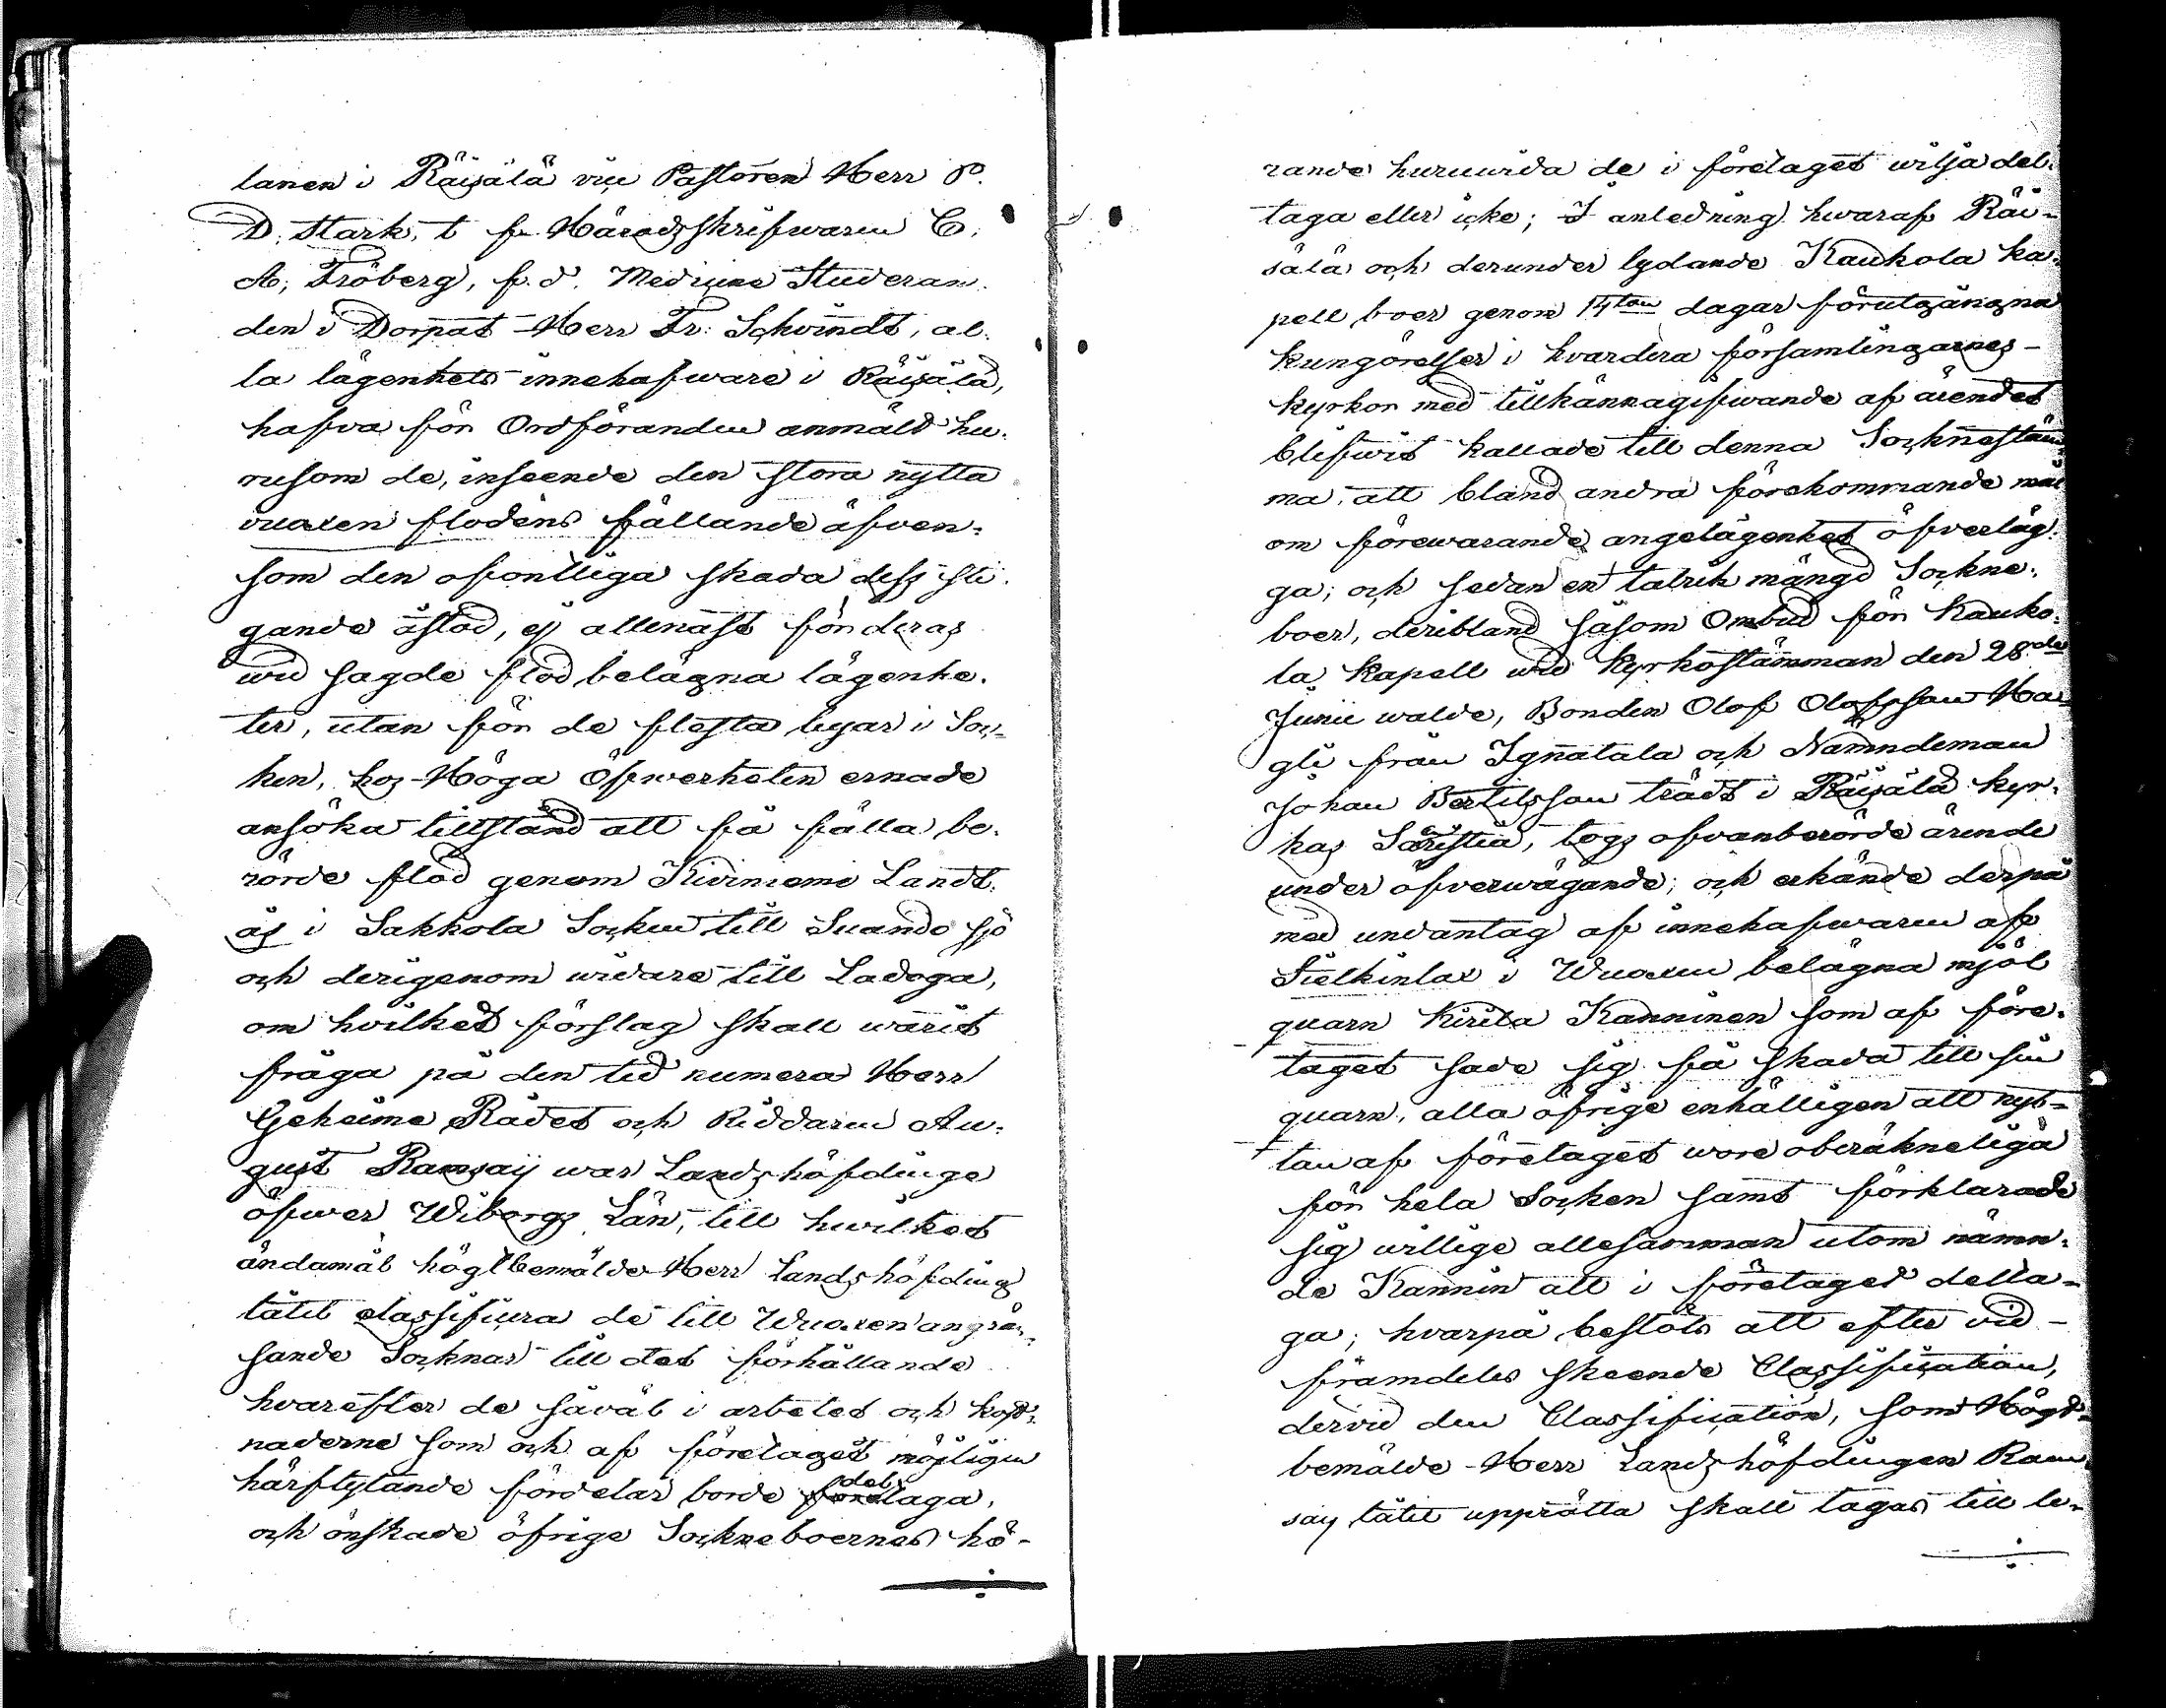 lanen i Räisälä vice Pastoren Herr P.
D. Stark, t f. Häradsskrifwaren C.
A. Fröberg, f. d. Medicine Studeran-
den i Dorpat Herr Fr. Schvindt, al-
la lägenhets innehafware i Räisälä,
hafva för Ordföranden anmält hu-
rusom de, inseende den stora nytta
vuoxen flodens fällande äfven-
som den ofantliga skada dess sti-
gande åstad, ej allenast för deras
wid sagde flod belägna lägenhe-
ter, utan för de flesta byar i Soc-
ken, hos Höga Öfwerheten ernade
ansöka tillstånd att få fälla be-
rörde flod genom Kiviniemi Landt-
ås i Sakkola Socken till Suando sjö
och derigenom widare till Ladoga,
om hvilket förslag skall warit
fråga på den tid numera Herr
Geheime Rådet och Riddaren Au-
gust Ramsaij war Landshöfdinge
öfwer Wiborgs Län, till hwilket
ändamål högtbemälde Herr Landshöfding
låtit classificera de till Wuoxen angrän-
sande Socknar till det förhållande
hvarefter de såväl i arbetet och kost-
naderne som och af företaget möjligen
härflytande fördelar borde deltaga,
och önskade öfrige Sockneboernes hö-
rande huruwida de i företaget wilja del-
taga eller icke; I anledning hwaraf Räi-
sälä och derunder lydande Kaukola ka-
pell boer genom 14ton dagar förutgångna
kungörelser i hvardera församlingarnes
kyrkor med tillkännagifwande af ärendet
blifwit kallade till denna Socknestäm-
ma, att bland andra förekommande mål
om förewarande angelägenhet öfverläg-
ga; och sedan en talrik mängd Sockne-
boer, deribland såsom Ombud för Kauko-
la Kapell wid Kyrkostämman den 28de
Junii walde, Bonden Olof Olofsson Ha-
gli från Ignatala och Nämndeman
Johan Bertilsson trädt i Räisälä kyr-
kas Sacristia, togs ofvanberörde ärende
under öfverwägande; och erkände derpå
med undantag af innehafwaren af
Sielkinlax i Wuoxen belägna mjöl
quarn Kirila Kanninen som af före-
taget sade sig få skada till sin
quarn, alla öfrige enhälligen att nyt-
tan af företaget wore oberäkneliga
för hela Socken samt förklarade
sig willige allesamman utom nämn-
de Kannin att i företaget delta-
ga; hvarpå beslöts att efter vid
framdeles skeende Classification,
dervid den Classification, som Högt-
bemälde Herr Landshöfdingen Ram-
say låtit upprätta skall tagas till le-